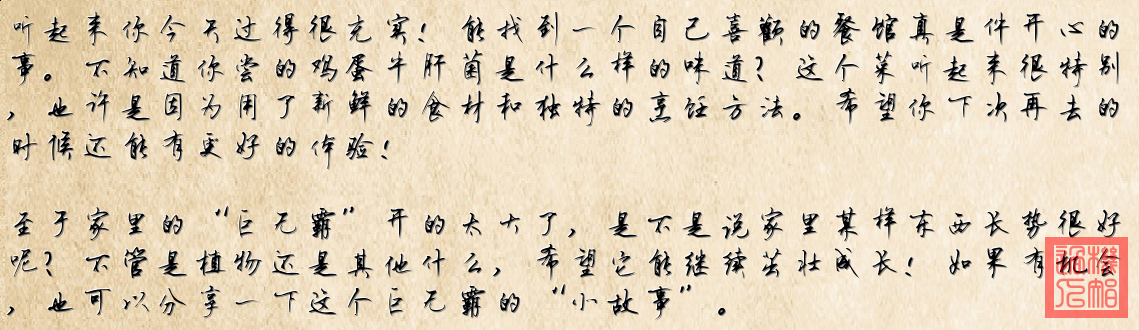 听起来你今天过得很充实！能找到一个自己喜欢的餐馆真是件开心的
事。不知道你尝的鸡蛋牛肝菌是什么样的味道？这个菜听起来很特别
，也许是因为用了新鲜的食材和独特的烹饪方法。希望你下次再去的
时候还能有更好的体验！
至于家里的“巨无霸”开的太大了，是不是说家里某样东西长势很好
呢？不管是植物还是其他什么，希望它能继续茁壮成长！如果有机会
，也可以分享一下这个巨无霸的“小故事”。